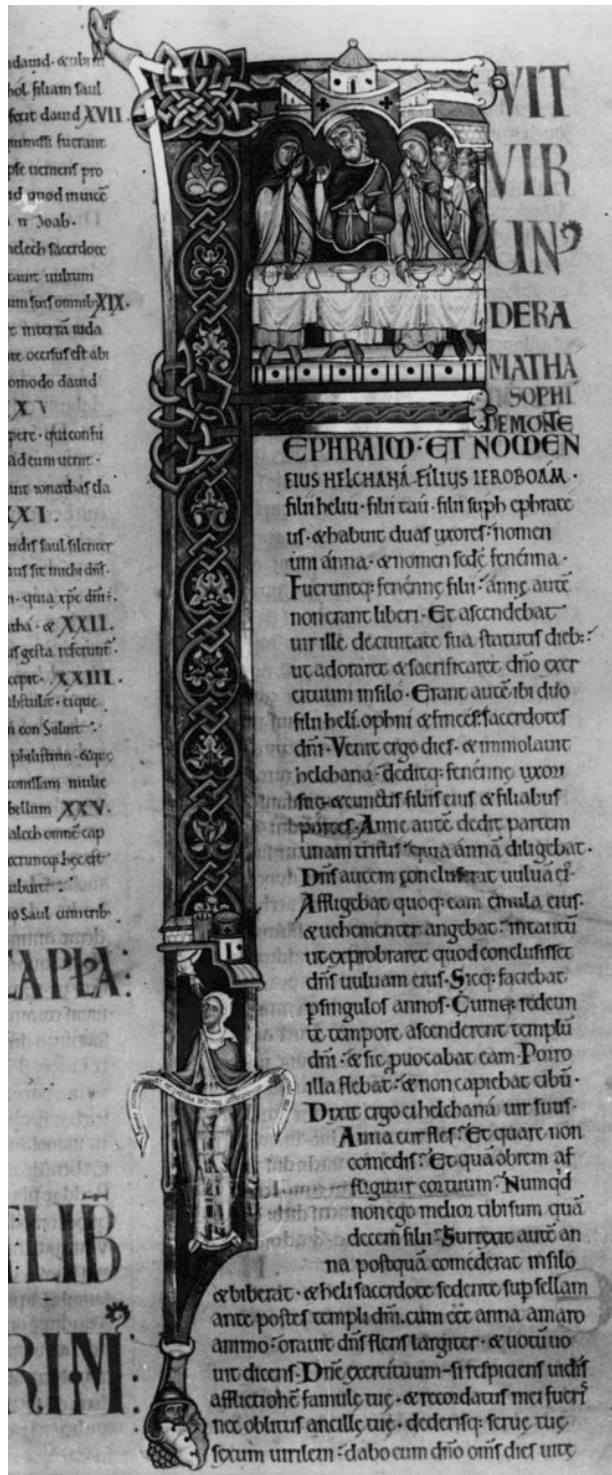 dauid · & ubi
hol filiam saul
fecit dauid XVII ·
missi fuerant
pse ueniens pro
id quod
n Joab ·
elech sacerdote
uultum
um suis omnib; XIX ·
t int̄ra iuda
te occisus est abi
omodo dauid
XX
pere · qui consu
ad eum uenit ·
ionathas da
XXI ·
saul silenter
us sit michi dn̄s ·
· quia xp̄c dn̄i :
thá · & XXII ·
us gesta referunt
cepit · XXIII ·
bstulit · eique
philistiim · &que
mulie
bellum XXV ·
alech omnē cap
erunt hec est
abuit
o Saul cum trib
CAPLA :
LIB̄
RIM :
FVIT
VIR
UN᾿
DE RA
MATHA
SOPHI
DE MONTE
EPHRAIM · ET NOMEN
EIUS HELCHANÁ · FILIUS IEROBOAM ·
filii heliu · filii tau · filii suph ephrate
us · & habuit duas uxores · nomen
uni ánna · & nomen secd̄e fenénna ·
Fueruntq; fenénne filii · ánne autē
non erant liberi · Et ascendebat
uir ille de ciuitate sua statutis dieb:
ut adoraret & sacrificaret dn̄o exer
cituum in silo · Erant autē ibi duo
filii heli · ophni & finees · sacerdotes
dn̄i · Venit ergo dies · & immolauit
helchaná · deditq; fenénne uxori
sue · & cunctis filiis eius & filiabus
partes · Anne autē dedit partem
unam tristis · quia ánnā diligebat ·
Dn̄s autem concluserat uuluā ei᾿ ·
Affligebat quoq: eam émula eius ·
& uehementer angebat · intantū
ut exprobraret quod conclusisset
dn̄s uuluam eius · Sicq; faciebat
p singulos annos · Cumq; redeun
te tempore ascenderent templū
dn̄i · & sic puocabat eam · Porro
illa flebat · & non capiebat cibū ·
Dixit ergo ei helchaná uir suus ·
Anna cur fles? Et quare non
comedis? Et quā obrem af
fligitur cor tuum? Numq'd
non ego melior tibi sum quā
decem filii? Surrexit autē an
na postquā coméderat in silo
& biberat · & heli sacerdote sedente sup sellam
ante postes templi dn̄i · cum eēt anna amaro
animo · orauit dn̄s flens largiter · & uotū uo
uit dicens · Dn̄e exercituum · si respiciens uidis
afflictionē famule tue · & recordatus mei fueris
nec oblitus ancille tue · dederisq; serue tue
sexum uirilem · dabo eum dn̄o om̄s dies uite